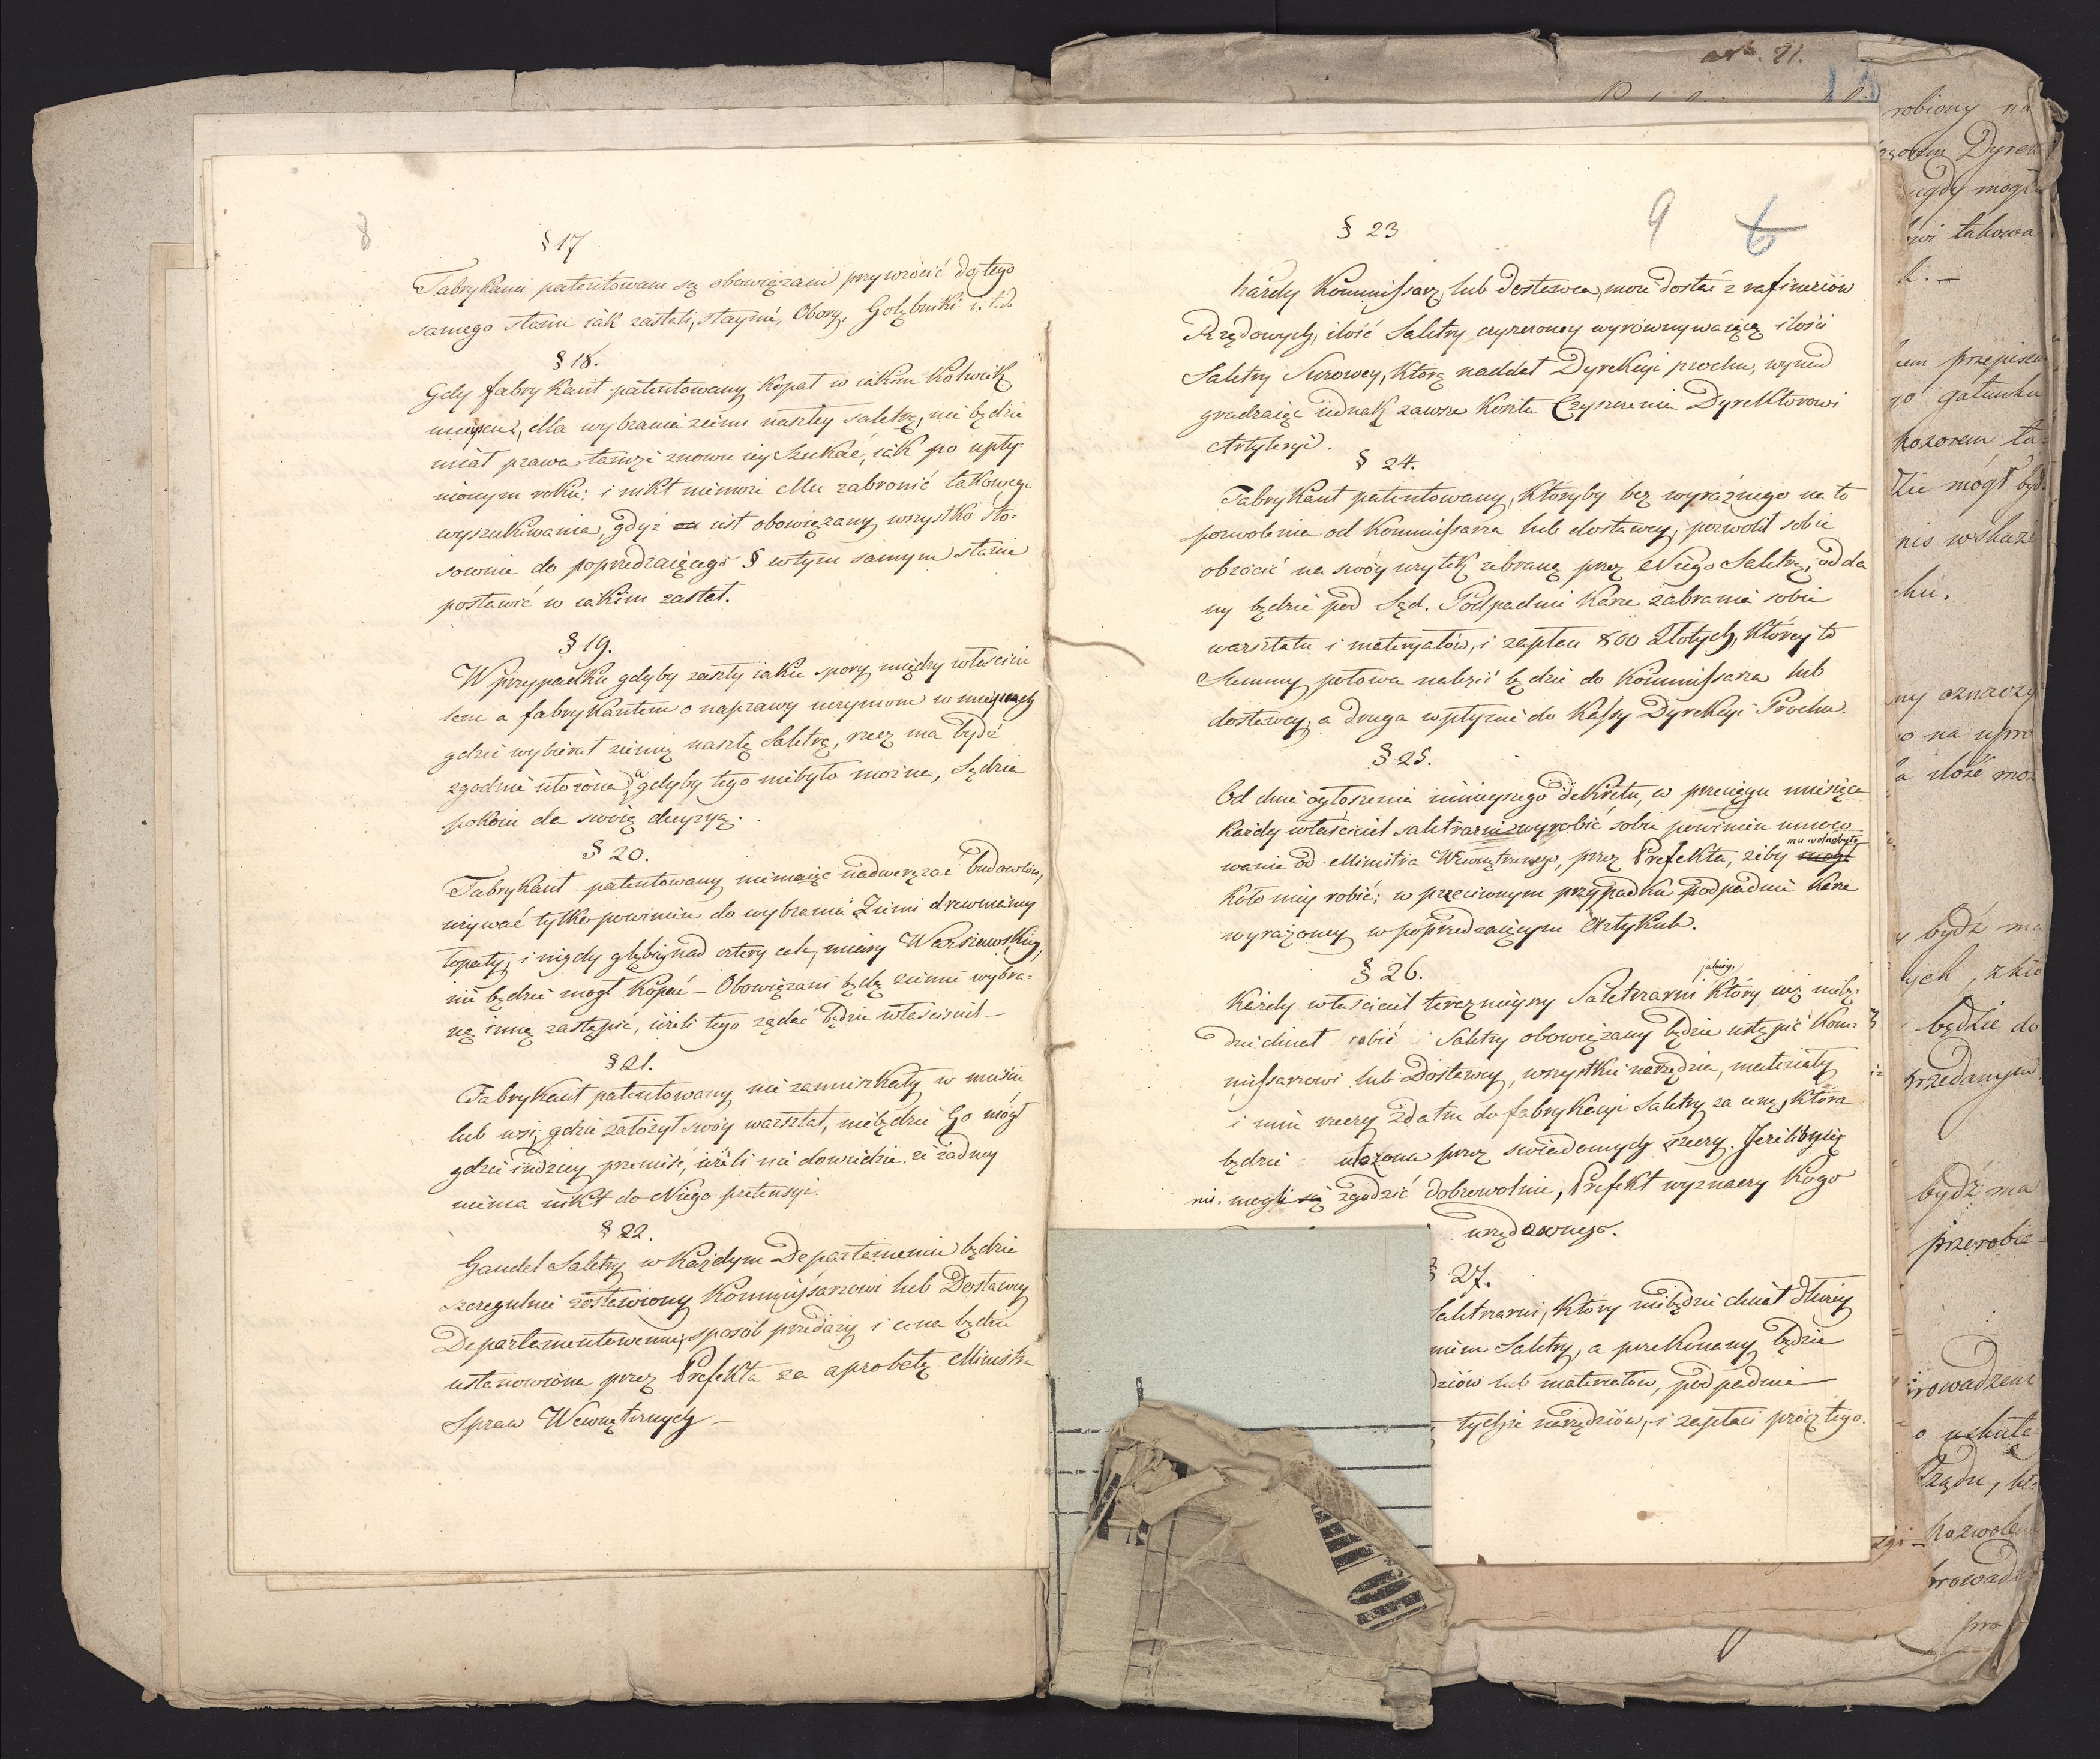 8
§ 17
Fabrykanci patentowani są obowiązani przywrócić do tego
samego stanu iak zastali, staynie, Obory, Gołębniki i.t.d.
§ 18.
Gdy fabrykant patentowany kopał w iakim kolwiek
mieyscu, dla wybrania ziemi naszłey saletrą, nie będzie
miał prawa tamże znowu iey szukać, iak po upły-
nionym roku; i nikt niemoże Mu zabronić takowego
wyszukiwania, gdyż on iest obowiązany wszystko sto-
sownie do poprzedzaiącego § w tym samym stanie
postawić w iakim zastał.
§ 19.
W przypadku gdyby zaszły iakie spory między właścicie
lem a fabrykantem o naprawy uczynione w mieyscach
gdzie wybierał ziemię naszłą Saletrą, rzecz ma bydź
zgodnie ułożona, a gdyby tego niebyło można, Sędzia
pokoiu da swoią decyzyą.
§ 20.
Fabrykant patentowany niemaiąc nadwerężać budowlów,
używać tylko powinien do wybrania Ziemi drewnianey
łopaty, i nigdy głębiey nad cztery cale, miary Warszawskiey,
nie będzie mogł kopać – Obowiązani będą ziemię wybra-
ną inną zastąpić, ieżeli tego żądać będzie właściciel –
§ 21.
Fabrykant patentowany nie zamieszkały w mieście
lub wsi, gdzie założył swóy warsztat, niebędzie Go mógł
gdzie indziey przenieść, ieżeli nie dowiedzie że żadney
niema nikt do Niego pretensyi.
§ 22.
Handel Saletry w każdym Departamencie będzie
szczegulnie zostawiony Kommissarzowi lub Dostawcy
Departamentowemu; sposób przedaży i cena będzie
ustanowiona przez Prefekta za aprobatą Ministra
Spraw Wewnętrznych –
9 6
§ 23
Każdy Kommissarz lub Dostawca, może dostać z rafineriów
Rządowych, ilość Saletry czyszczoney wyrównywaiącą ilości
Saletry Surowey, którą naddał Dyrekcyi prochu, wynad
gradzaiąc iednak zawsze koszta Czyszczenia Dyrektorowi
Artyleryi.
§ 24.
Fabrykant patentowany, któryby bez wyraźnego na to
pozwolenia od Kommissarza lub dostawcy, pozwolił sobie
obrócić na swóy użytek zebraną przez Niego Saletrę, odda
ny będzie pod Sąd. Podpadnie karze zabrania sobie
warsztatu i materyałów, i zapłaci 800 Złotych, którey to
Summy połowa należić będzie do Kommissarza lub
dostawcy, a druga wpłynie do Kassy Dyrekcyi Prochu.
§ 25.
Od dnia ogłoszenia ninieyszego Dekretu, w przeciągu miesiąca
każdy właściciel saletrarni wyrobić sobie powinien umoco
wanie od Ministra Wewnętrznego, przez Prefekta, żeby mogł
mu wolno było
koło niey robić; w przeciwnym przypadku podpadnie karze
wyrażoney w poprzedzaiącym Artykule.
§ 26.
Każdy właściciel terażnieyszy Saletrarni który iuż niebę-
dzie chciał robić Saletry obowiązany będzie ustąpić Kom-
missarzowi lub Dostawcy, wszystkie narzędzia, materiały
i inne rzeczy zdatne do fabrykacyi Saletry za cenę, która
będzie ułożona przez świadomych rzeczy. Jeżeliby się
nie mogli się zgodzić dobrowolnie, Prefekt wyznaczy kogo
urzędownego.
§ 27.
Saletrarni, który niebędzie chciał dłużey
niem Saletry, a przekonany będzie
dziów lub materiałów, podpadnie
tychże narzędziów, i zapłaci prócz tego.
art. 21.
robiony na
Dyrek
mogł
takowa
k. –
em przepisem
go gatunku
dozorem ta-
dzie mógł być
nis wskaże
chu.
ny oznaczy
o na upro
a ilość moż
y bydź ma
ych, z któ
będzie do
rzedanym
bydź ma
przerobie-
rowadzeni
o uskute-
Rządu, kt-
pozwole
prowadz
pro